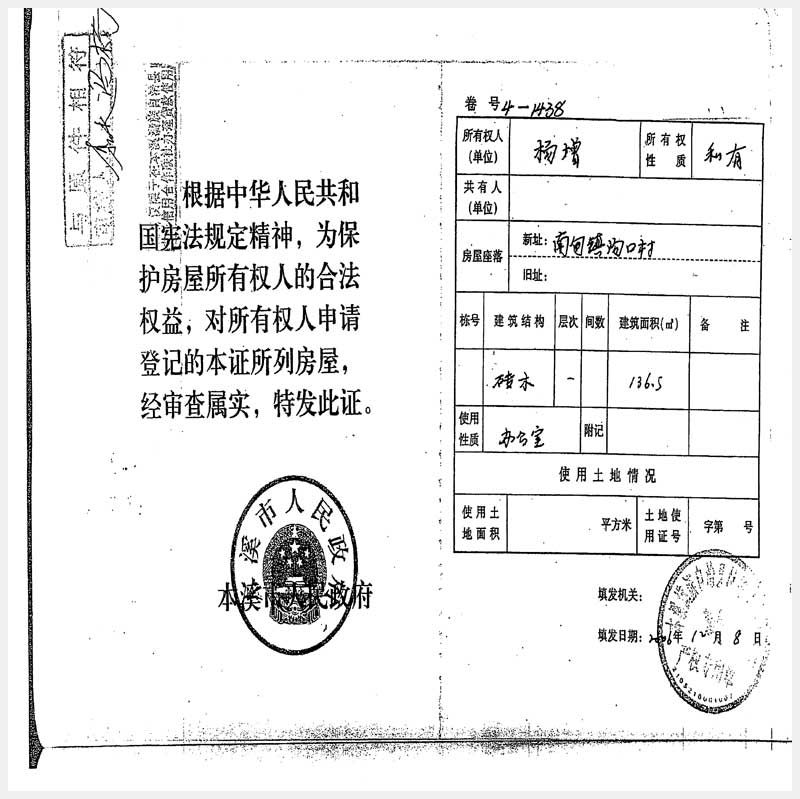 与原件相符
根据中华人民共和
国宪法规定精神，为保
护房屋所有权人的合法
权益，对所有权人申请
登记的本证所列房屋，
经审查属实，特发此证。
本溪市人民政府
卷 号 4-1438
所有权人
(单位)
杨增
所有权
性 质
私有
共有人
(单位)
房屋座落
新址: 南甸镇沟口村
旧址:
栋号 建筑结构 层次 间数 建筑面积(㎡) 备 注
砖木 一 136.5
使用
性质
办公室
附记
使用土地情况
使用土
地面积
平方米
土地使
用证号
字第 号
填发机关:
填发日期: 2006年12月8日
产权专用章